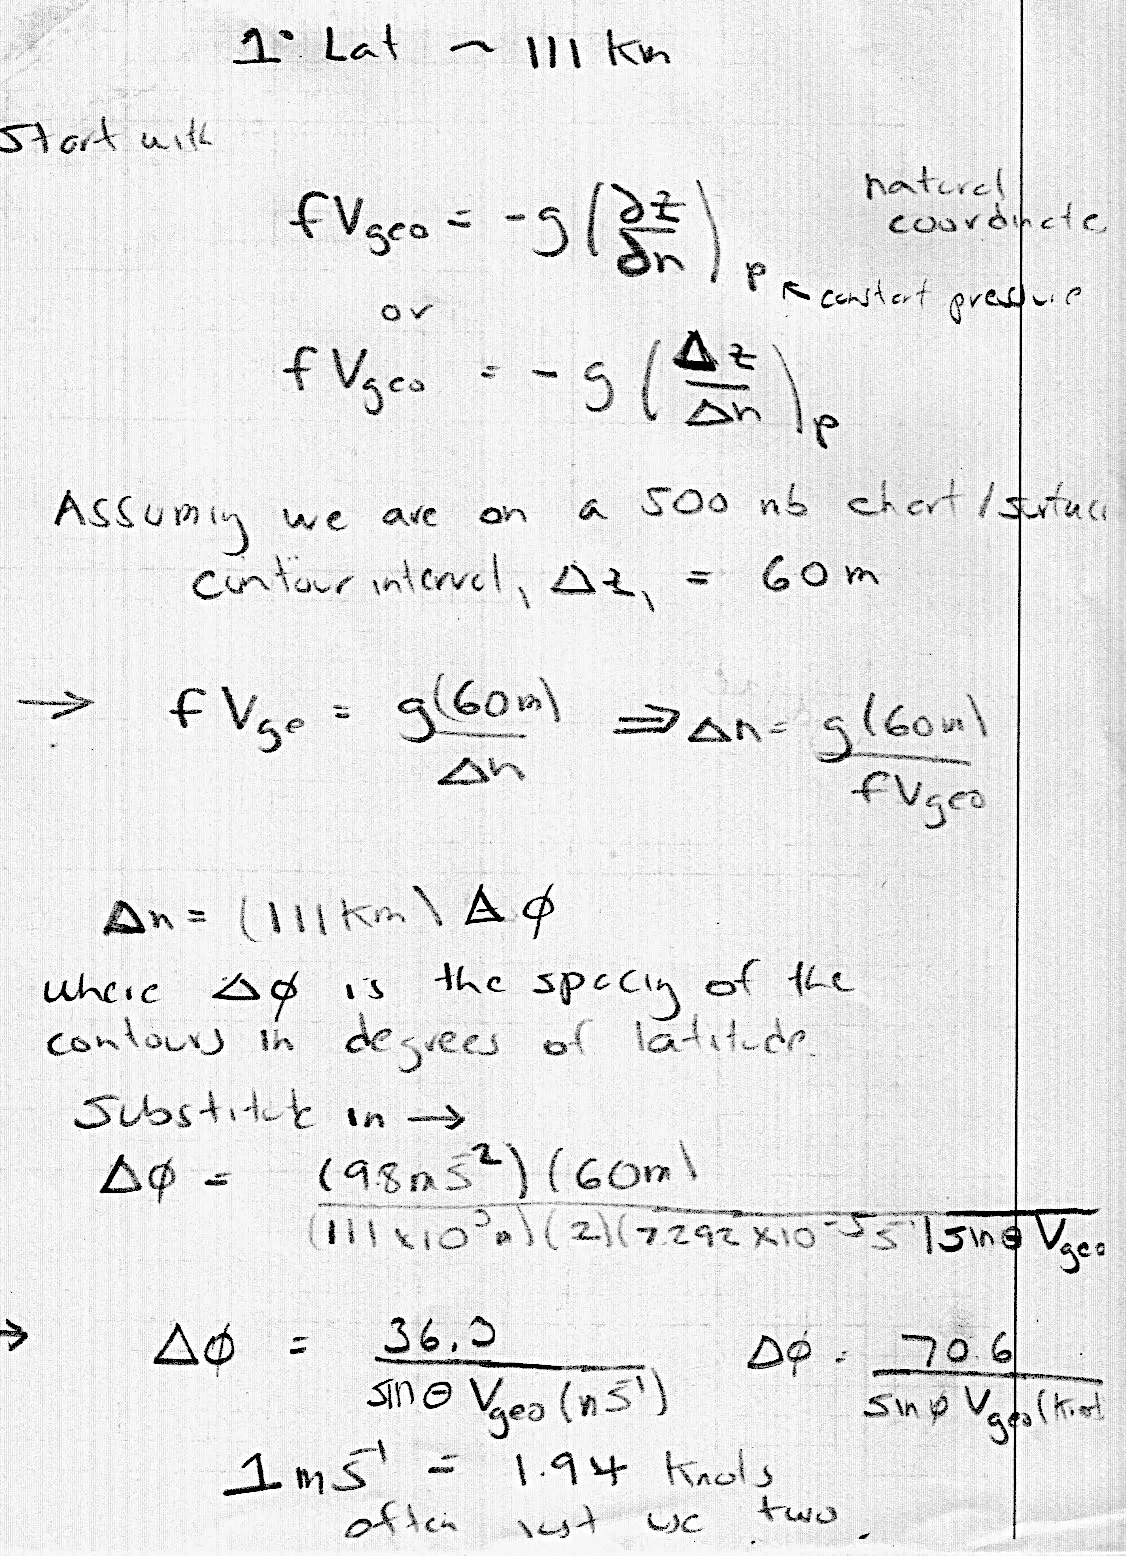 1° Lat ~ 111 km
Start with
f V_geo = -g (∂z/∂n)_p natural coordinate
↖ constant pressure
or
f V_geo = -g (Δz/Δn)_p
Assuming we are on a 500 mb chart / surface
contour interval, Δz, = 60 m
→ f V_ge = g(60m)/Δn ⇒ Δn = g(60m)/f V_geo
Δn = (111 km) Δφ
where Δφ is the spacing of the
contours in degrees of latitude.
Substitute in →
Δφ = (9.8 m s^-2) (60m) / (111 x 10^3 m) (2) (7.292 x 10^-5 s^-1) sin θ V_geo
→ Δφ = 36.3 / sin θ V_geo (m s^-1) Δφ = 70.6 / sin φ V_geo (knot
1 m s^-1 = 1.94 knots
often just use two.